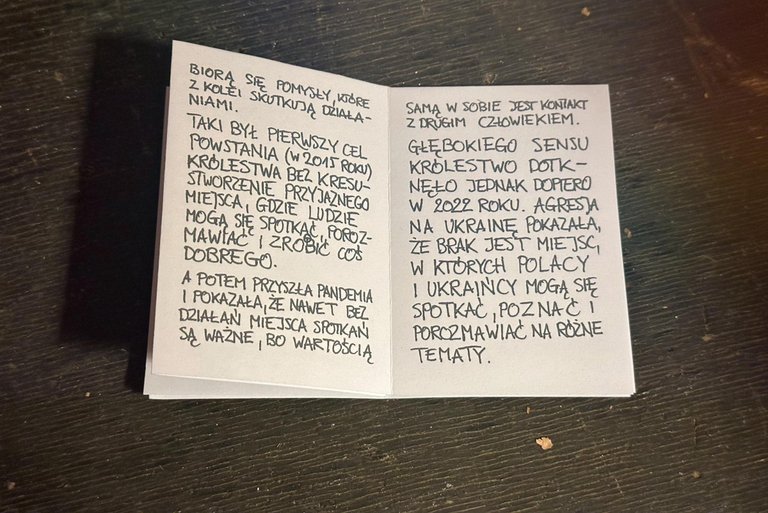 BIORĄ SIĘ POMYSŁY, KTÓRE
Z KOLEI SKUTKUJĄ DZIAŁA-
NIAMI.
TAKI BYŁ PIERWSZY CEL
POWSTANIA (W 2015 ROKU)
KRÓLESTWA BEZ KRESU-
STWORZENIE PRZYJAZNEGO
MIEJSCA, GDZIE LUDZIE
MOGĄ SIĘ SPOTKAĆ, POROZ-
MAWIAĆ I ZROBIĆ COŚ
DOBREGO.
A POTEM PRZYSZŁA PANDEMIA
I POKAZAŁA, ŻE NAWET BEZ
DZIAŁAŃ MIEJSCA SPOTKAŃ
SĄ WAŻNE, BO WARTOŚCIĄ
SAMĄ W SOBIE JEST KONTAKT
Z DRUGIM CZŁOWIEKIEM.
GŁĘBOKIEGO SENSU
KRÓLESTWO DOTK-
NĘŁO JEDNAK DOPIERO
W 2022 ROKU. AGRESJA
NA UKRAINĘ POKAZAŁA,
ŻE BRAK JEST MIEJSC,
W KTÓRYCH POLACY
I UKRAIŃCY MOGĄ SIĘ
SPOTKAĆ, POZNAĆ I
POROZMAWIAĆ NA RÓŻNE
TEMATY.